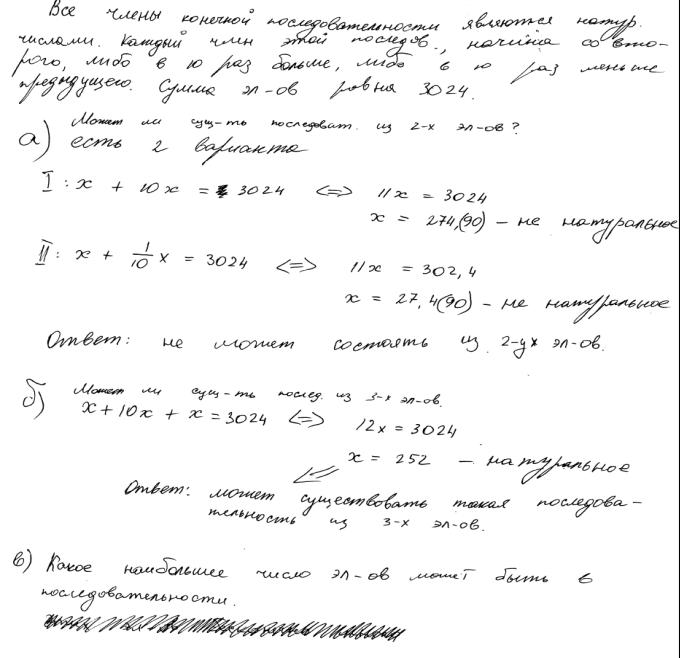 Все члены конечной последовательности являются натур.
числами. Каждый член этой последов., начиная со вто-
рого, либо в 10 раз больше, либо в 10 раз меньше
предыдущего. Сумма эл-ов равна 3024.
Может ли сущ-ть последоват. из 2-х эл-ов?
а) есть 2 варианта
I: x + 10x = 3024 <=> 11x = 3024
x = 274,(90) – не натуральное
II: x + 1/10 x = 3024 <=> 11x = 302,4
x = 27,4(90) – не натуральное
Ответ: не может состоять из 2-ух эл-ов.
б) Может ли сущ-ть послед. из 3-х эл-ов.
x + 10x + x = 3024 <=> 12x = 3024
x = 252 – натуральное
Ответ: может существовать такая последова-
тельность из 3-х эл-ов.
в) Какое наибольшее число эл-ов может быть в
последовательности.